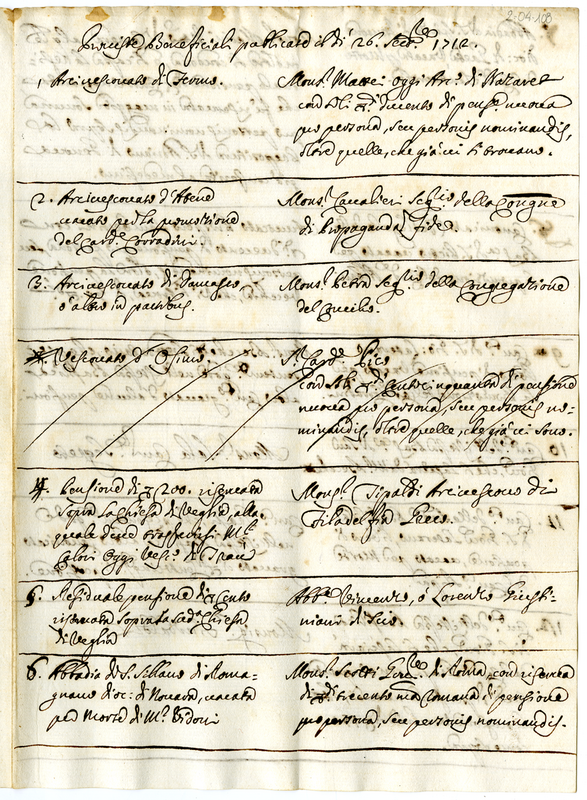 2-04-108
Provviste Beneficiali publicate il dì 26. Sett.re 1712.
1. Arcivescovato di Fermo.
Mons.r Mattei oggi Arc.o di Nazaret
con ducento di pens.e nuova
pro persona, seu personis nominandis,
oltre quelle, che già vi si trovano.
2. Arcivescovato d'Atene
vacato per la promozione
del Card.e Corradini.
Mons.r Cavalieri Seg.rio della Congne
di Propaganda fide.
3. Arcivescovato di Damasco
o altro in partibus.
Mons.r Seg.rio della Congregazione
del Concilio.
Vescovato d'Osimo
S.r Card.e Pico
con cento cinquanta di pensione
nuova pro persona, seu personis no-
minandis, oltre quelle, che già vi sono.
4. Pensione di 200. riservata
sopra la Chiesa di Veglia alla
quale fu trasferito M.r
Calori Oggi Vesc.o di Traù
Mons.r Tipaldi Arcivescovo di
Filadelfia Greco.
5. Residuale pensione di Cento
riservata sopra la sud.a Chiesa
di Veglia
Abb.e Vincenzo, o Lorenzo Giusti-
niani di Scio
6. Abbadia di S. Silano di Roma-
gnano dioc: di Novara, vacata
per morte di M.r Vidoni
Mons.r Scotti Gov.re di Roma, con riserva
di trecento m.ta romana di pensione
pro persona, seu personis nominandis.